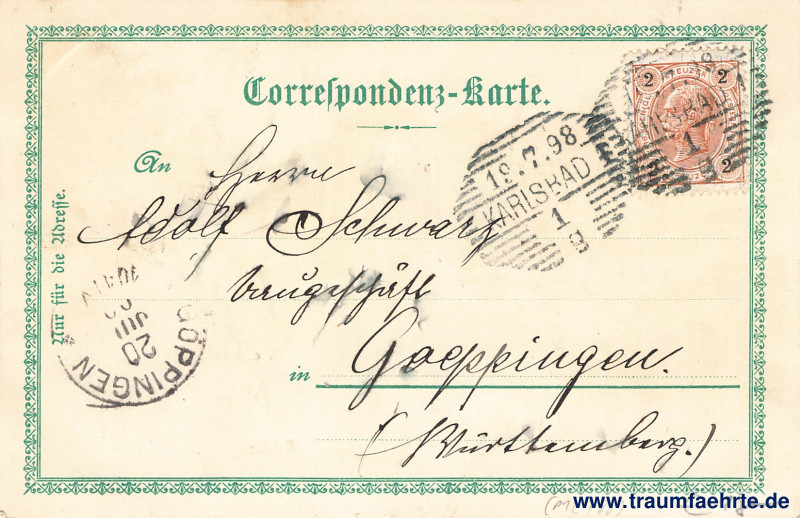 Correspondenz-Karte.
An Herrn
Adolf Schwarz
Baugeschäft
in Goeppingen.
(Württemberg.)
Nur für die Adresse.
18.7.98
KARLSBAD
1
g
2 KREUZER 2
2
KARLSBAD
1
GÖPPINGEN
20
JUL
www.traumfaehrte.de